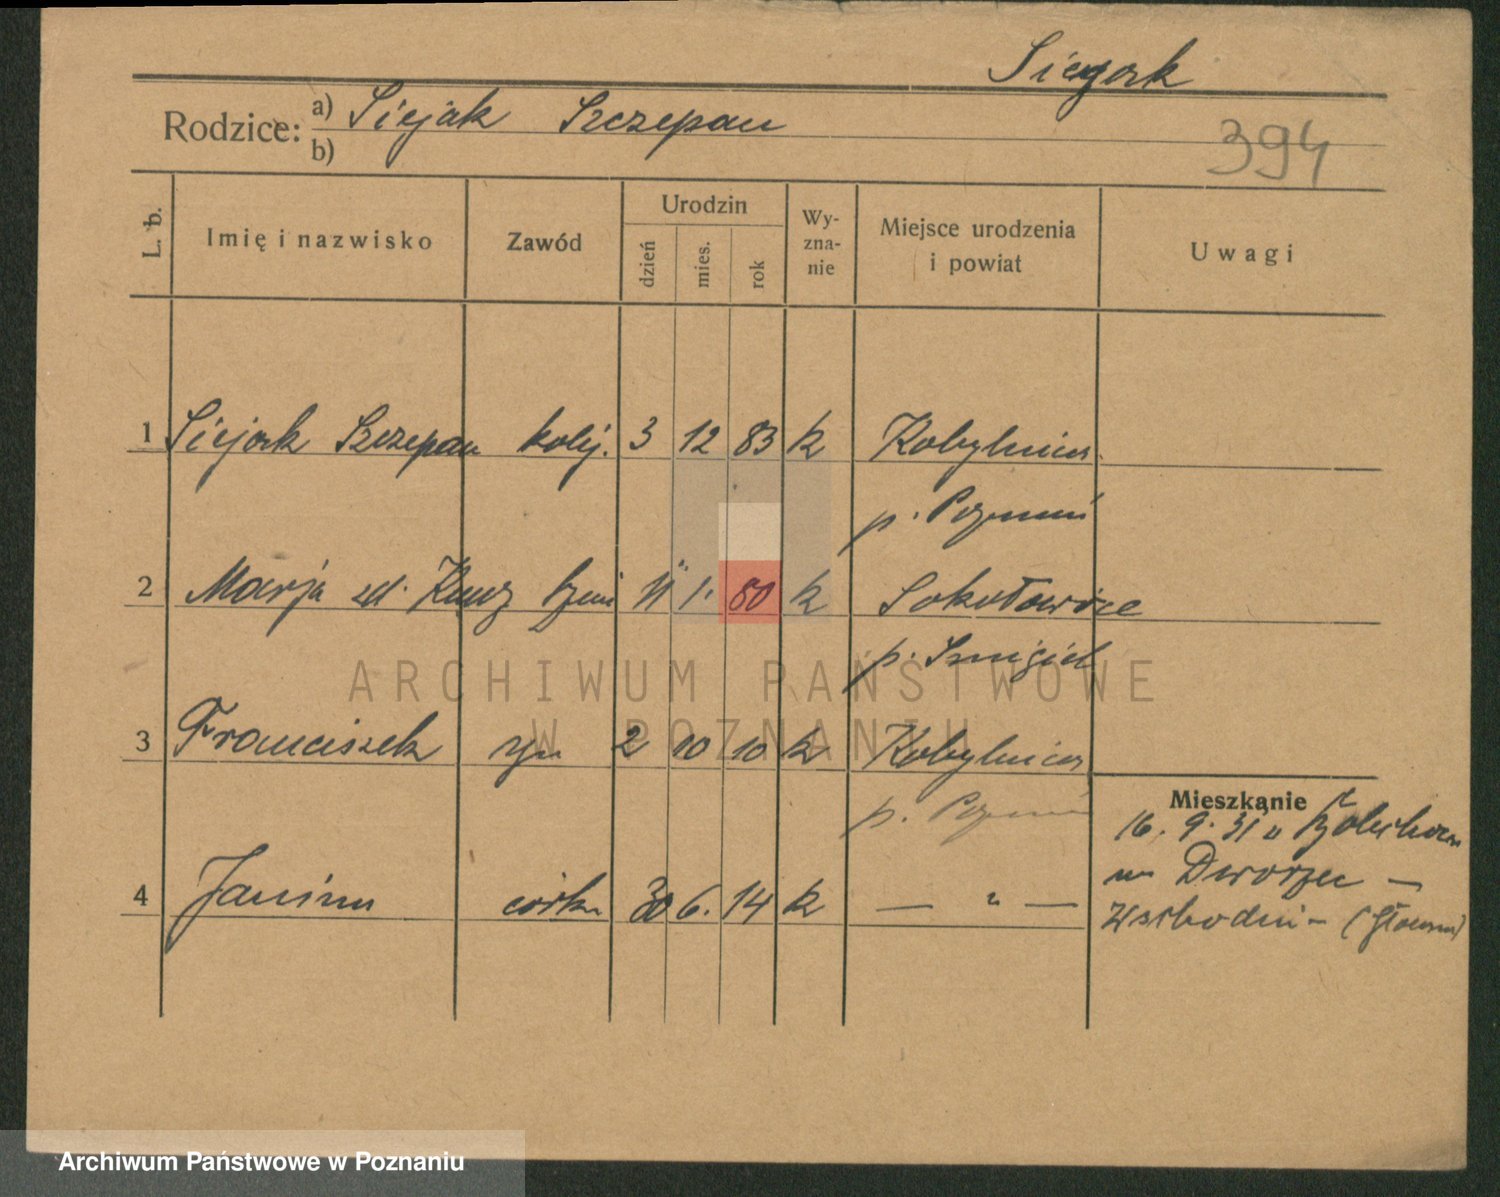 Siejak
Rodzice: a) Siejak Szczepan
b)
394
L. b. Imię i nazwisko Zawód Urodzin dzień mies. rok Wy-zna-nie Miejsce urodzenia i powiat Uwagi
1 Siejak Szczepan kolej. 3 12 83 k Kobylnica
p. Poznań
2 Marja zd. Kucz 11 1. 80 k Sokołowice
p. Śmigiel
3 Franciszek syn 2 10 10 k Kobylnica
p. Poznań
4 Janina córka 30 6. 14 k — " —
Mieszkanie
16. 9. 31
na Dworzec —
Wschodni - (Główna)
ARCHIWUM PAŃSTWOWE
W POZNANIU
Archiwum Państwowe w Poznaniu